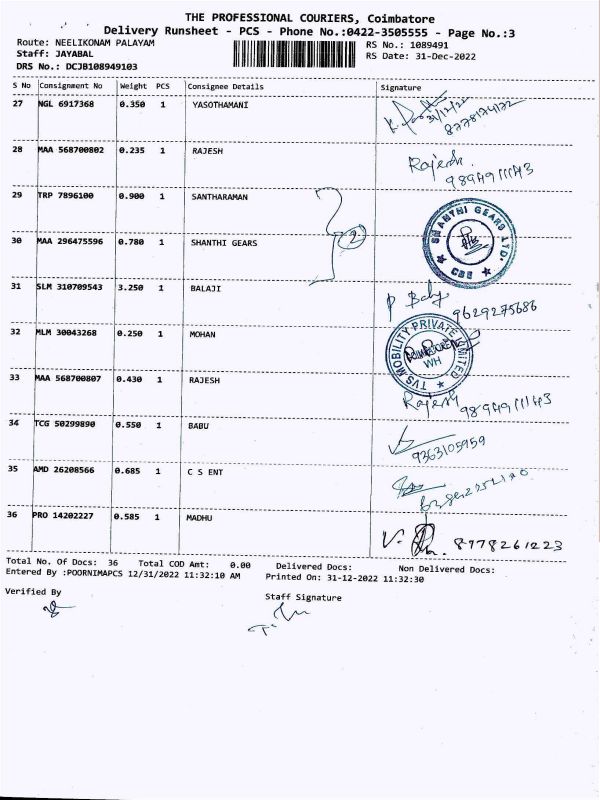 THE PROFESSIONAL COURIERS, Coimbatore
Delivery Runsheet - PCS - Phone No.:0422-3505555 - Page No.:3
Route: NEELIKONAM PALAYAM
RS No.: 1089491
Staff: JAYABAL
RS Date: 31-Dec-2022
DRS No.: DCJB108949103
S No Consignment No Weight PCS Consignee Details Signature
27 NGL 6917368 0.350 1 YASOTHAMANI
31/12/22
8778174172
28 MAA 568700802 0.235 1 RAJESH Rajesh
29 TRP 7896100 0.900 1 SANTHARAMAN
SHANTHI GEARS LTD.
CBE
30 MAA 296475596 0.780 1 SHANTHI GEARS
2
31 SLM 310709543 3.250 1 BALAJI
9629275686
32 MLM 30043268 0.250 1 MOHAN
TVS MOBILITY PRIVATE LIMITED
WH
33 MAA 568700807 0.430 1 RAJESH Rajesh
34 TCG 50299890 0.550 1 BABU
9363105959
35 AMD 26208566 0.685 1 C S ENT
36 PRO 14202227 0.585 1 MADHU
8778261223
Total No. Of Docs: 36 Total COD Amt: 0.00 Delivered Docs: Non Delivered Docs:
Entered By :POORNIMAPCS 12/31/2022 11:32:10 AM Printed On: 31-12-2022 11:32:30
Verified By
Staff Signature